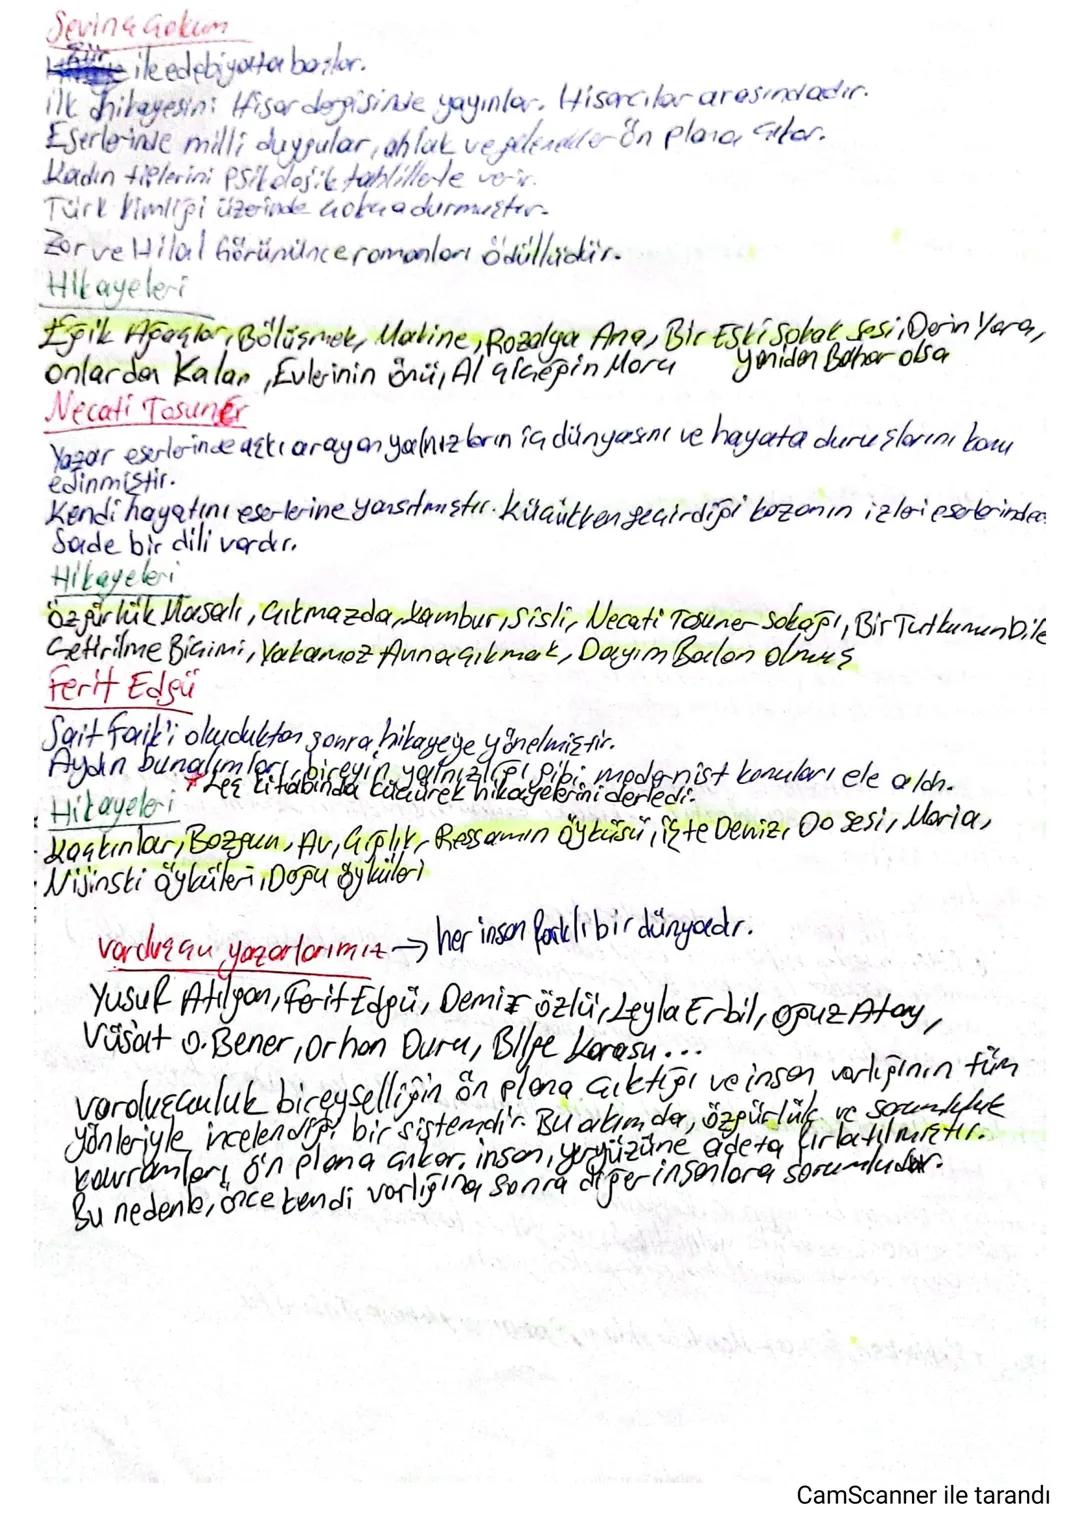 Sevinç Çokum
Şiir ile edebiyatta başlar.
ilk hikayesini Hisar dergisinde yayınlar. Hisarcılar arasındadır.
Eserlerinde milli duygular, ahlak ve gelenekler ön plana çıkar.
Kadın tiplerini psikolojik tahlillerle verir.
Türk kimliği üzerinde çokça durmuştur.
Zor ve Hilal Görününce romanları ödüllüdür.
Hikayeleri
Eğik Ağaçlar, Bölüşmek, Makine, Rozalya Ana, Bir Eski Sokak Sesi, Derin Yara,
onlardan Kalan, Evlerinin önü, Al çiçeğin Moru yeniden Bahar olsa
Necati Tosuner
Yazar eserlerinde aşkı arayan yalnızların iç dünyasını ve hayata duruşlarını konu
edinmiştir.
Kendi hayatını eserlerine yansıtmıştır. Küçükken geçirdiği kazanın izleri eserlerinde.
Sade bir dili vardır.
Hikayeleri
özgürlük Masalı, Çıkmazda, Kambur, Sisli, Necati Tosuner Sokağı, Bir Tutkunun Dile
Getirilme Biçimi, Yakamoz Avına Çıkmak, Dayım Balon Olmuş
Ferit Edgü
Sait Faik'i okuduktan sonra hikayeye yönelmiştir.
Aydın bunalımları, bireyin yalnızlığı gibi modernist konuları ele aldı.
* Leş kitabında küçürek hikayelerini derledi.
Hikayeleri
Kaçkınlar, Bozgun, Av, Çığlık, Ressamın öyküsü, işte Deniz, Do Sesi, Maria,
Nijinski öyküleri, Doğu öyküleri
varoluşçu yazarlarımız → her insan farklı bir dünyadır.
Yusuf Atılgan, Ferit Edgü, Demir özlü, Leyla Erbil, oğuz Atay,
Vüsat O. Bener, Orhan Duru, Bilge Karasu...
varoluşçuluk bireyselliğin ön plana çıktığı ve insan varlığının tüm
yönleriyle incelendiği bir sistemdir. Bu akımda, özgürlük ve sorumluluk
kavramları ön plana çıkar. insan, yeryüzüne adeta fırlatılmıştır.
Bu nedenle, önce kendi varlığına sonra diğer insanlara sorumludur.
CamScanner ile tarandı